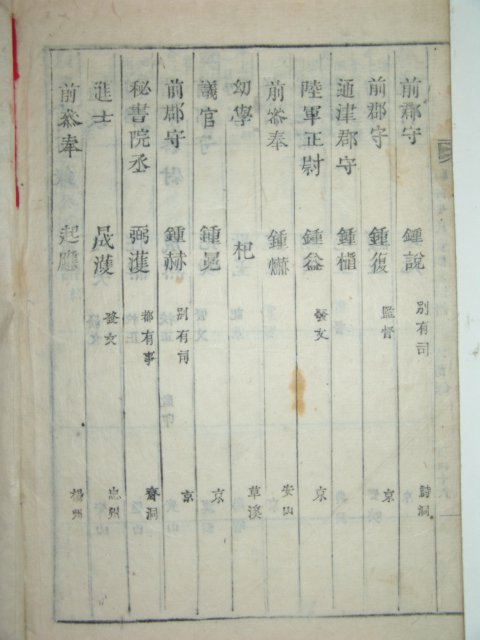 前郡守 鍾說 別有司 詩洞
前郡守 鍾復 監督 京
通津郡守 鍾植
陸軍正尉 鍾益 發文 京
前參奉 鍾爀 安山
幼學 杞 草溪
議官 鍾晃 京
前郡守 鍾赫 別有司 京
秘書院丞 弼濩 都有事 齋洞
進士 晟濩 發文 忠州
前參奉 起應 楊州